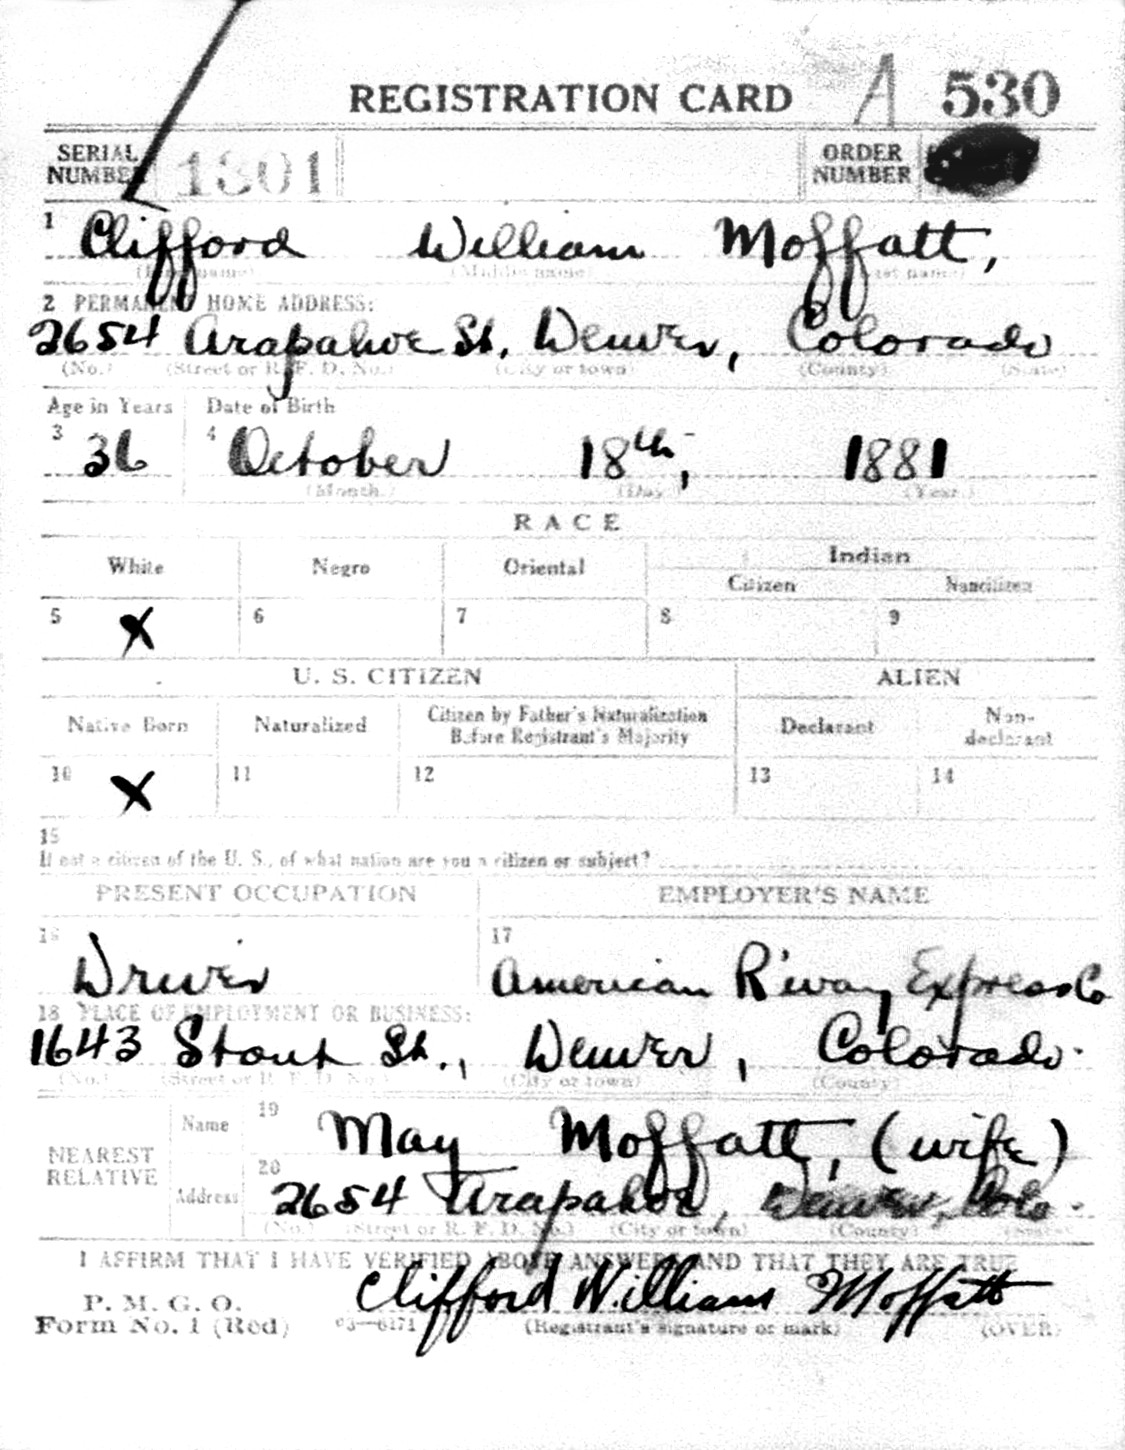 REGISTRATION CARD A 530
SERIAL NUMBER 1301 ORDER NUMBER
1 Clifford William Moffatt,
(First name) (Middle name) (Last name)
2 PERMANENT HOME ADDRESS:
2654 Arapahoe St, Denver, Colorado
(No.) (Street or R. F. D. No.) (City or town) (County) (State)
Age in Years Date of Birth
3 36 4 October 18th, 1881
(Month.) (Day.) (Year.)
RACE
White Negro Oriental Indian
Citizen Noncitizen
5 X 6 7 8 9
U. S. CITIZEN ALIEN
Native Born Naturalized Citizen by Father's Naturalization Before Registrant's Majority Declarant Non-declarant
10 X 11 12 13 14
15
If not a citizen of the U. S., of what nation are you a citizen or subject?
PRESENT OCCUPATION EMPLOYER'S NAME
16 Driver 17 American R'way Express Co
18 PLACE OF EMPLOYMENT OR BUSINESS:
1643 Stout St., Denver, Colorado.
(No.) (Street or R. F. D. No.) (City or town) (County)
NEAREST RELATIVE Name 19 May Moffatt, (wife)
Address 20 2654 Arapahoe, Denver, Colo.
(No.) (Street or R. F. D. No.) (City or town) (County) (State)
I AFFIRM THAT I HAVE VERIFIED ABOVE ANSWERS AND THAT THEY ARE TRUE
P. M. G. O.
Form No. 1 (Red) 03—6171 Clifford William Moffatt
(Registrant's signature or mark) (OVER)